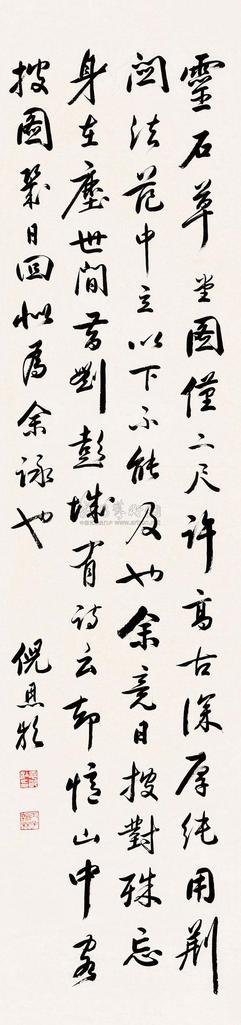 靈石草堂圖僅二尺許高古深厚純用荆
關法范中立以下不能及也余竟日披對殊忘
身在塵世間昔劉彭城有詩云却憶山中客
披圖幾日回似為余詠也
倪恩齡